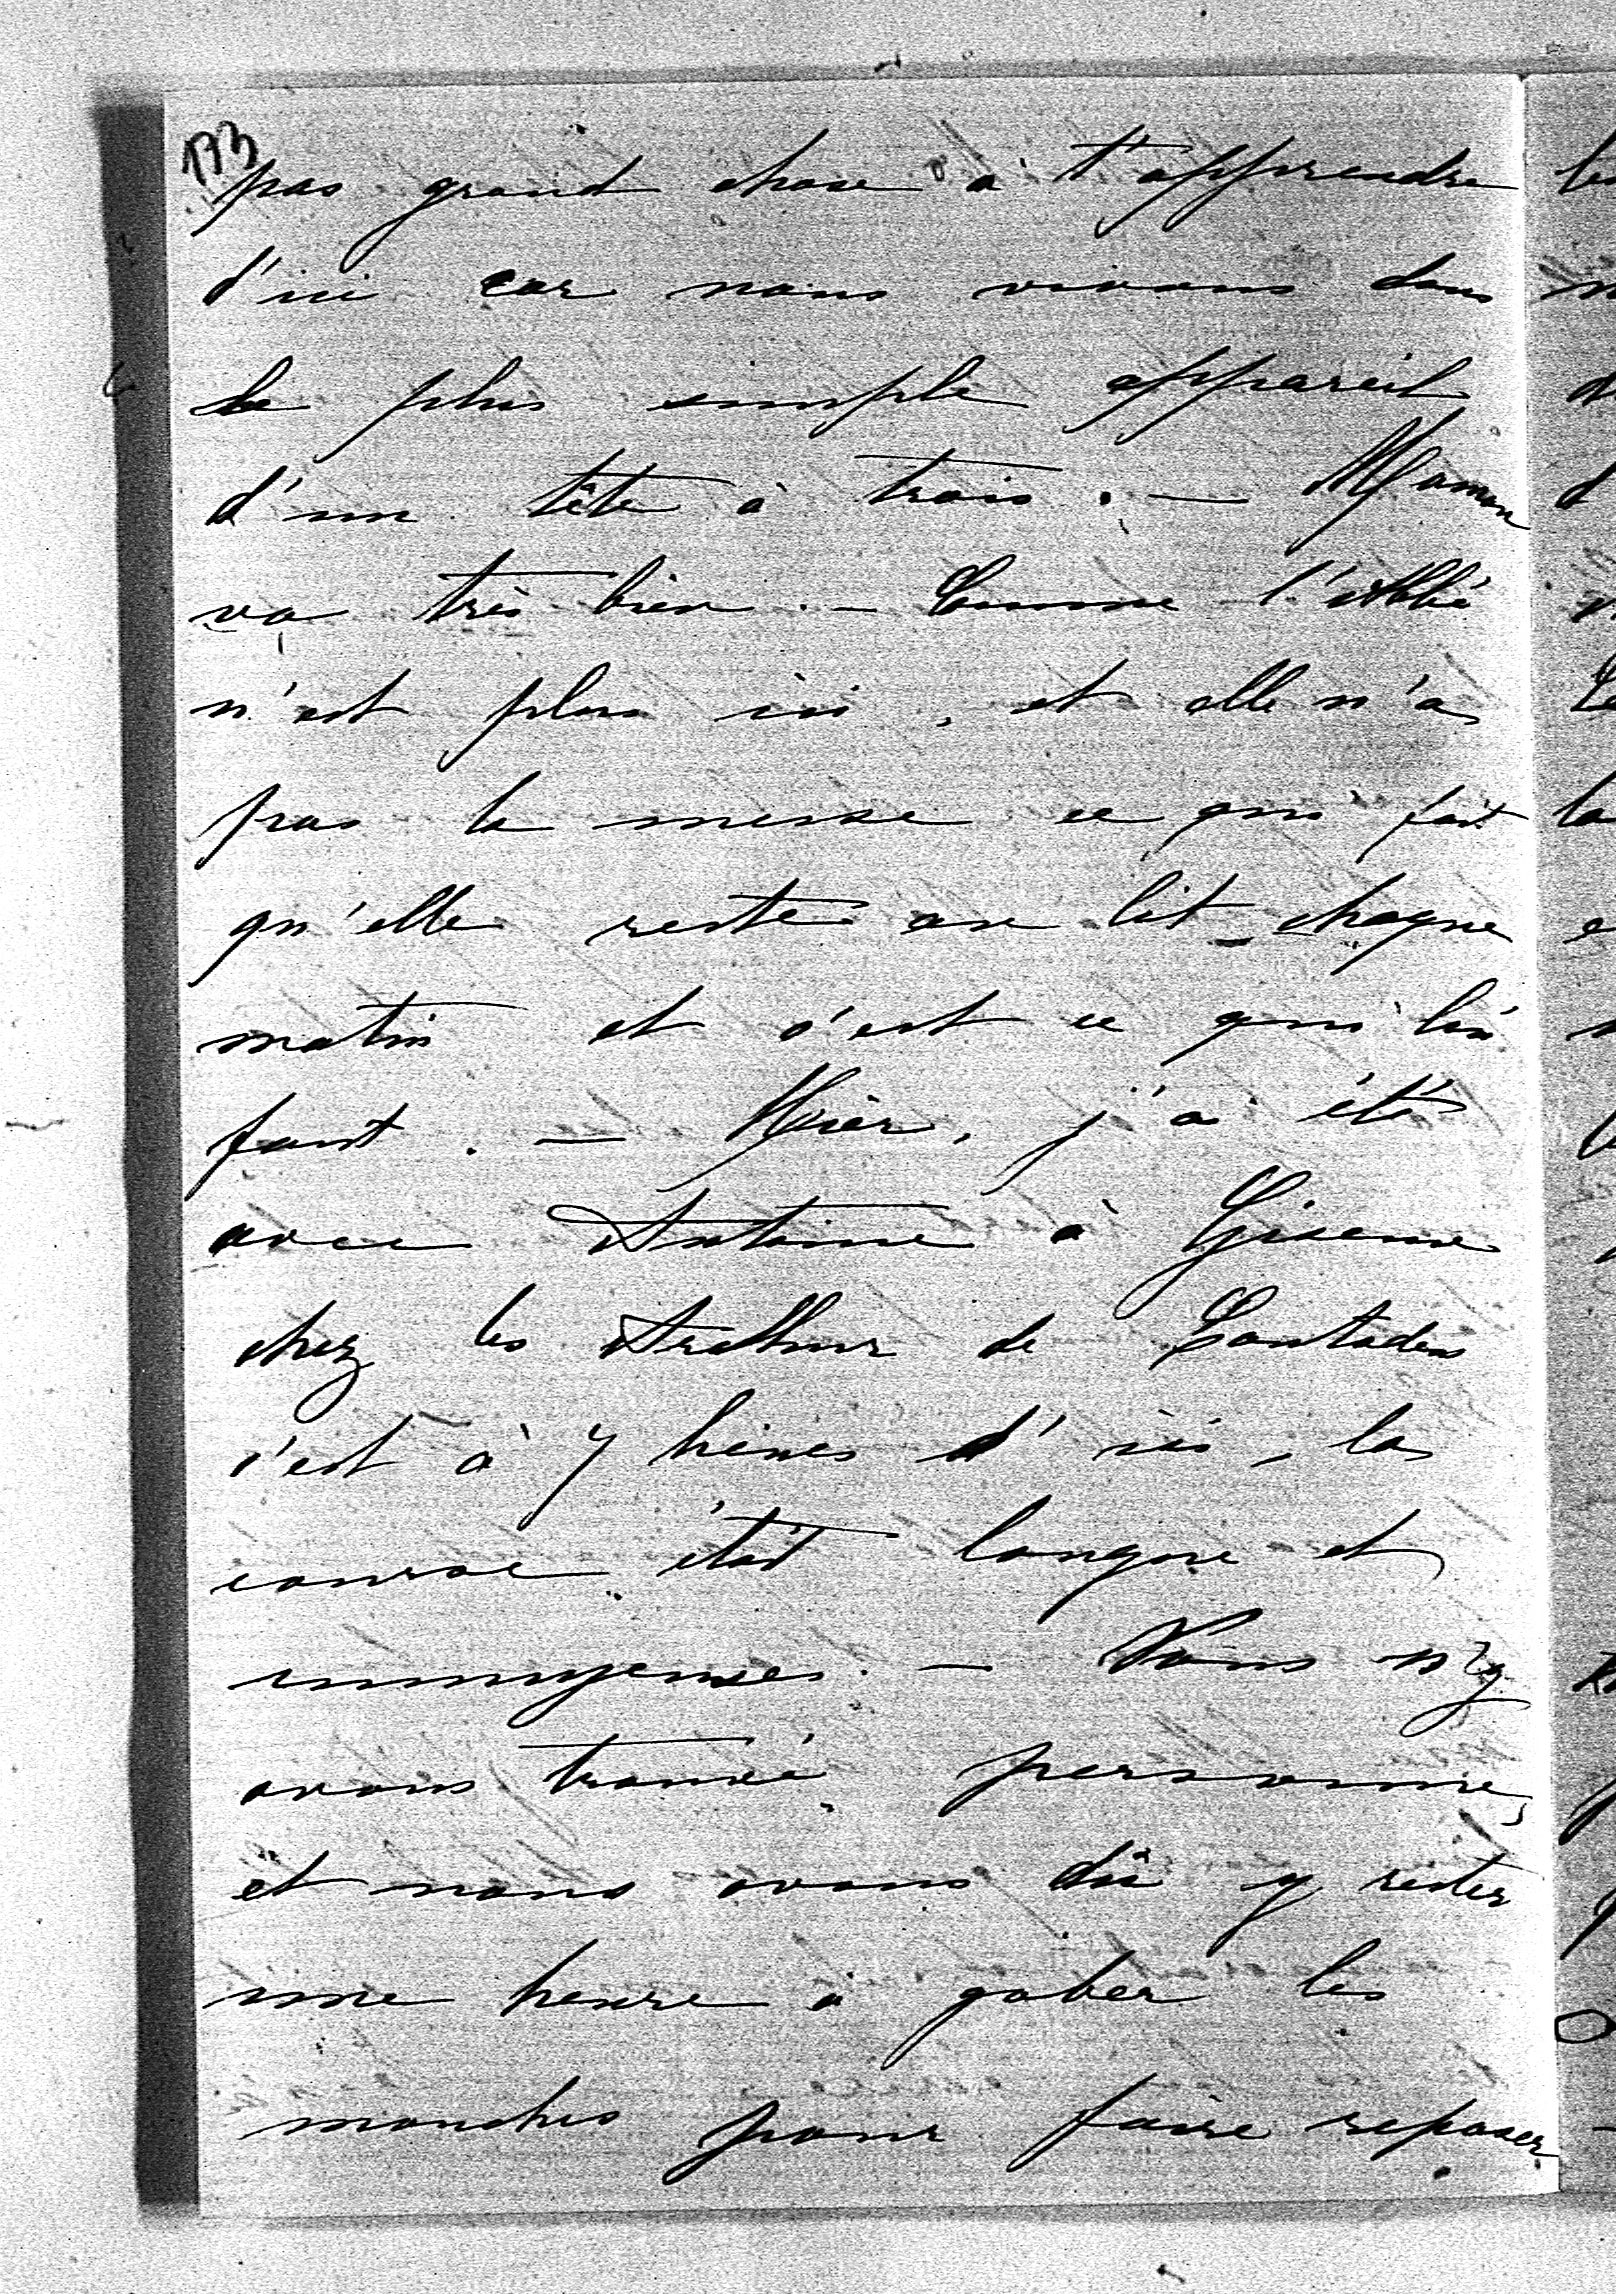 173
pas grand chose à t'apprendre
d'ici car nous vivons dans
le plus simple appareil
d'un tête à trois. — Maman
va très bien. — Comme l'abbé
n'est plus ici, et elle n'a
pas la messe ce qui fait
qu'elle reste au lit chaque
matin et c'est ce qui lui
faut. — Hier, j'ai été
avec Antoine à Gizeux
chez les Arthur de Contades
c'est à 7 lieues d'ici, la
course était longue et
ennuyeuse. — Nous n'y
avons trouvé personne,
et nous avons dû y rester
une heure à gober les
mouches pour faire reposer